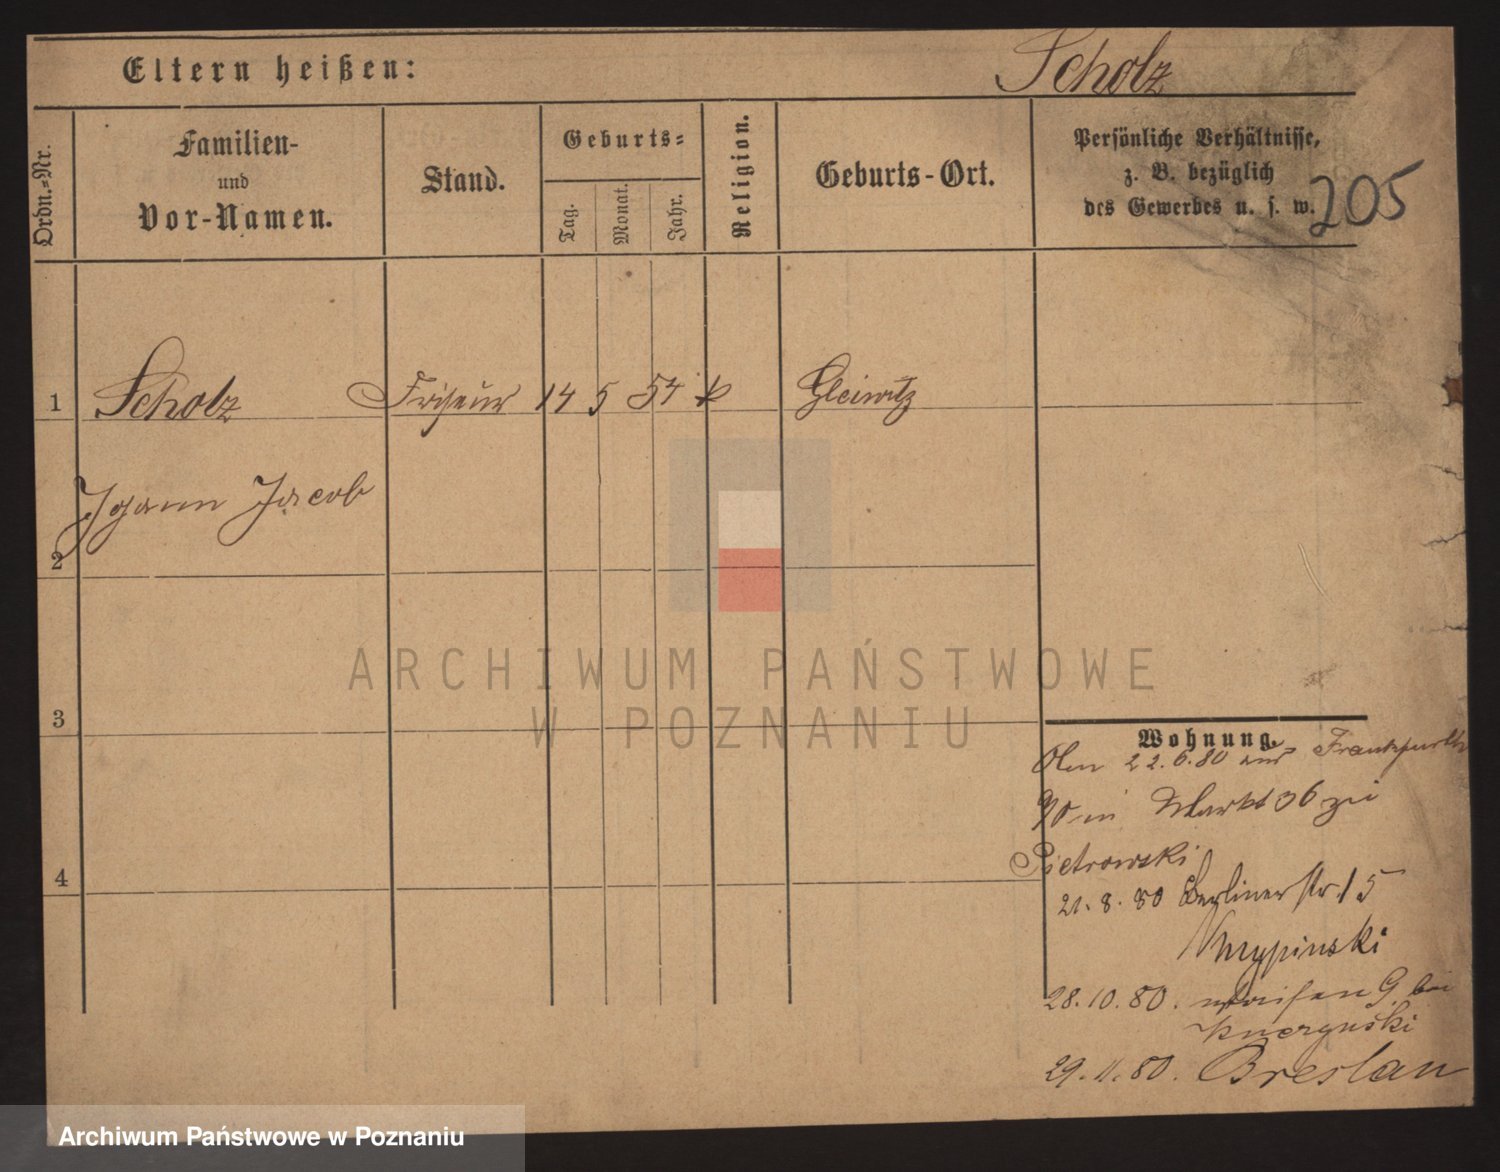 Eltern heißen:
Scholz
Ordn.-Nr.
Familien-
und
Vor-Namen.
Stand.
Geburts-
Tag.
Monat.
Jahr.
Religion.
Geburts-Ort.
Persönliche Verhältnisse,
z. B. bezüglich
des Gewerbes u. s. w.
205
1 Scholz Friseur 14 5 54 k Gleiwitz
Johann Jacob
2
3
4
Wohnung.
22.6.80 aus Frankfurth
Markt 36 zu
Pietrowski
21.8.80 Berlinerstr. 15
28.10.80. G. bei
29.11.80. Breslau
ARCHIWUM PAŃSTWOWE
W POZNANIU
Archiwum Państwowe w Poznaniu